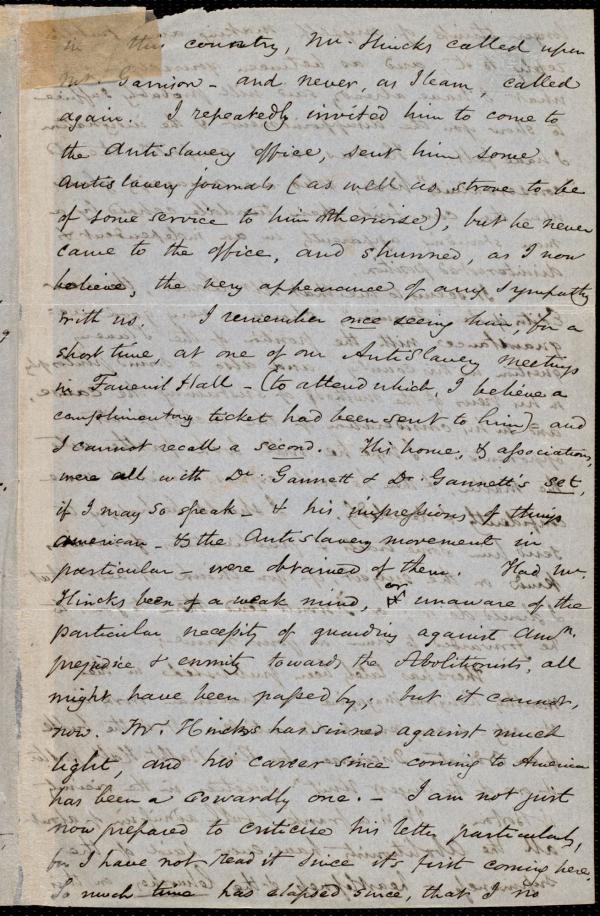 in this country, Mr. Hincks called upon
Mr. Garrison - and never, as I learn, called
again. I repeatedly invited him to come to
the Antislavery office, sent him some
Antislavery journals (as well as strove to be
of some service to him otherwise), but he never
came to the office, and shunned, as I now
believe, the very appearance of any sympathy
with us. I remember once seeing him, for a
short time, at one of our Antislavery meetings
in Faneuil Hall - (to attend which, I believe a
complimentary ticket had been sent to him) - and
I cannot recall a second. His home, & associations,
were all with Dr. Gannett & Dr. Gannett's set,
if I may so speak - & his impressions of things
American - & the Antislavery movement in
particular - were obtained of them. Had Mr.
Hincks been of a weak mind, or unaware of the
particular necessity of guarding against Amn.
prejudice & enmity towards the Abolitionists, all
might have been passed by. but it cannot,
now. Mr. Hincks has sinned against much
light, and his career since coming to America
has been a cowardly one. - I am not just
now prepared to criticise his letter particularly,
for I have not read it since its first coming here,
So much time has elapsed since, that I no